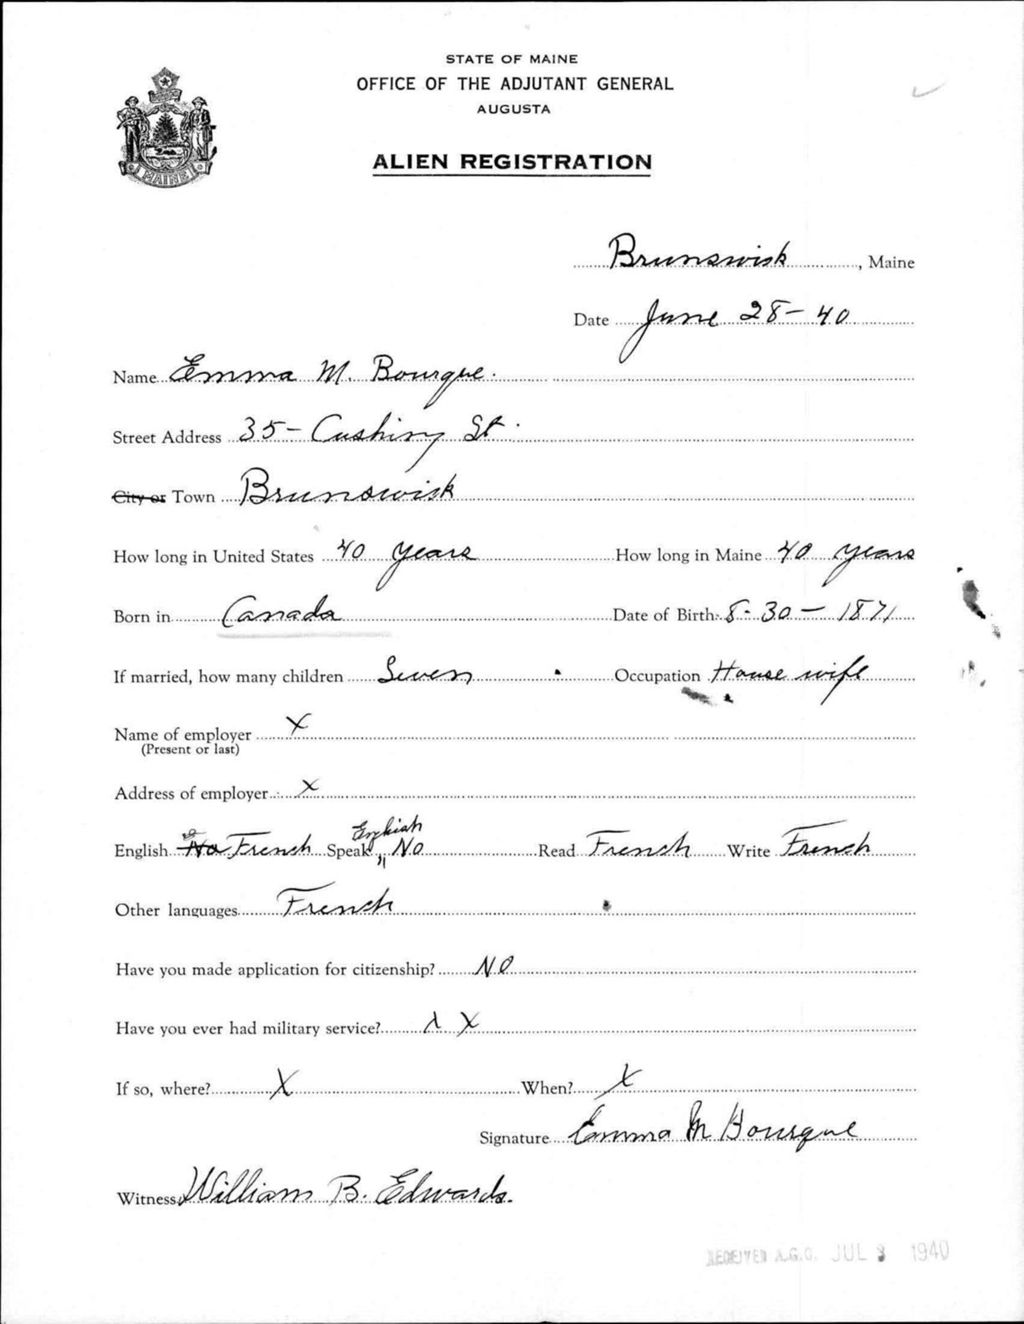 STATE OF MAINE
OFFICE OF THE ADJUTANT GENERAL
AUGUSTA
MAINE
ALIEN REGISTRATION
Brunswick, Maine
Date June 28- 40
Name Emma M. Bourque.
Street Address 35- Cushing St.
City or Town Brunswick
How long in United States 40 years How long in Maine 40 years
Born in Canada Date of Birth 8-30-1871
If married, how many children Seven Occupation House wife
Name of employer X
(Present or last)
Address of employer X
English No French Speak English No Read French Write French
Other languages French
Have you made application for citizenship? No
Have you ever had military service? X X
If so, where? X When? X
Signature Emma M Bourque
Witness William B. Edwards.
RECEIVED A.G.O. JUL 1940